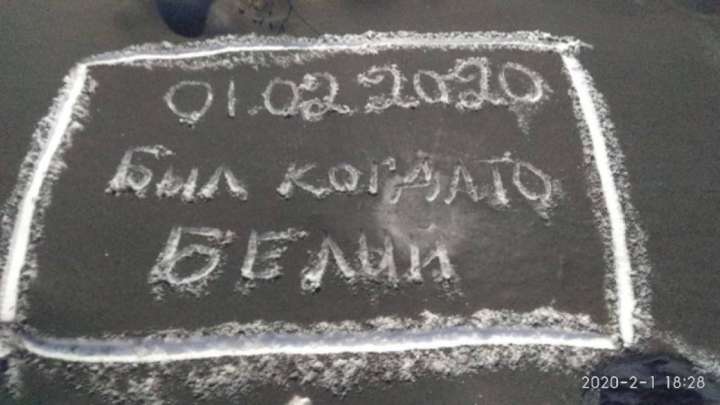 01.02.2020
Был когдато
БЕЛИЙ
2020-2-1 18:28